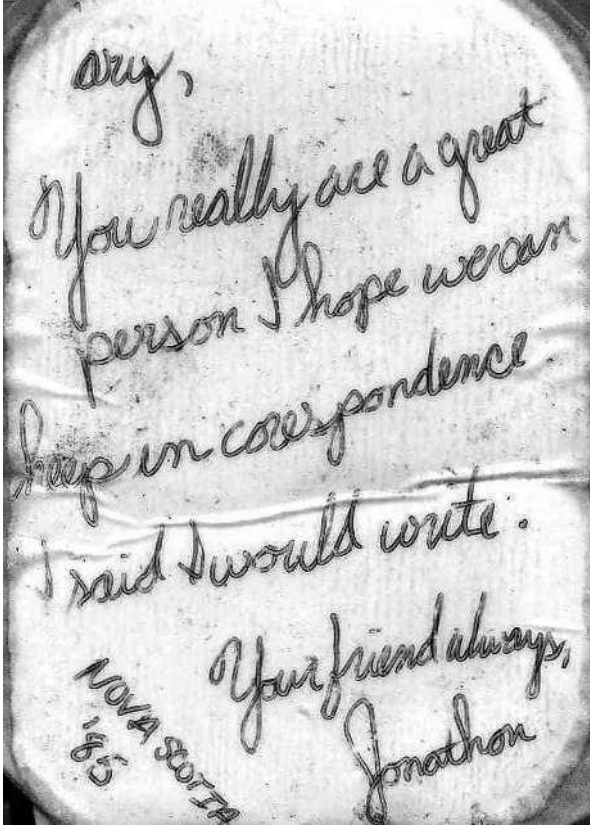 ary,
You really are a great
person I hope we can
keep in corespondence
I said I would write.
Your friend always,
Jonathon
NOVA SCOTIA
'85